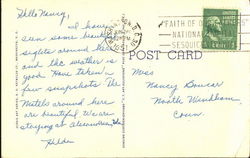 Hello Nancy,
I have
seen some beautiful
sights around here
and the weather is
good. Have taken a
few snapshots. The
Motels around here
are beautiful. We are
staying at Alexandria, Va.
Hilda
1951
FAITH OF OUR
NATIONAL
SESQUI
POST CARD
Miss
Nancy
North Windham
Conn.